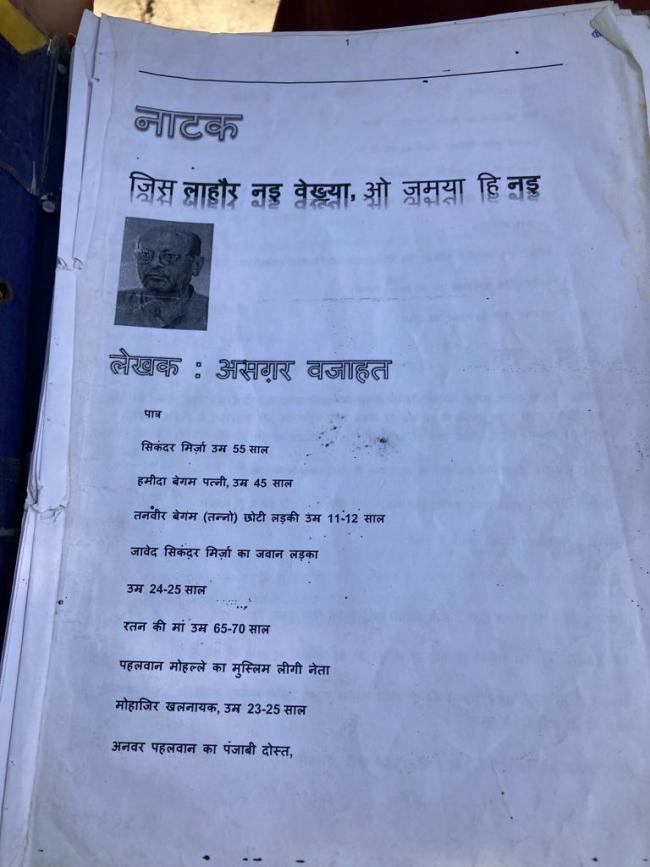 1
नाटक
जिस लाहौर नइ वेख्या, ओ जमया हि नइ
लेखक : असग़र वजाहत
पात्र
सिकंदर मिर्ज़ा उम्र 55 साल
हमीदा बेगम पत्नी, उम्र 45 साल
तनवीर बेगम (तन्नो) छोटी लड़की उम्र 11-12 साल
जावेद सिकंदर मिर्ज़ा का जवान लड़का
उम्र 24-25 साल
रतन की मां उम्र 65-70 साल
पहलवान मोहल्ले का मुस्लिम लीगी नेता
मोहाजिर खलनायक, उम्र 23-25 साल
अनवर पहलवान का पंजाबी दोस्त,